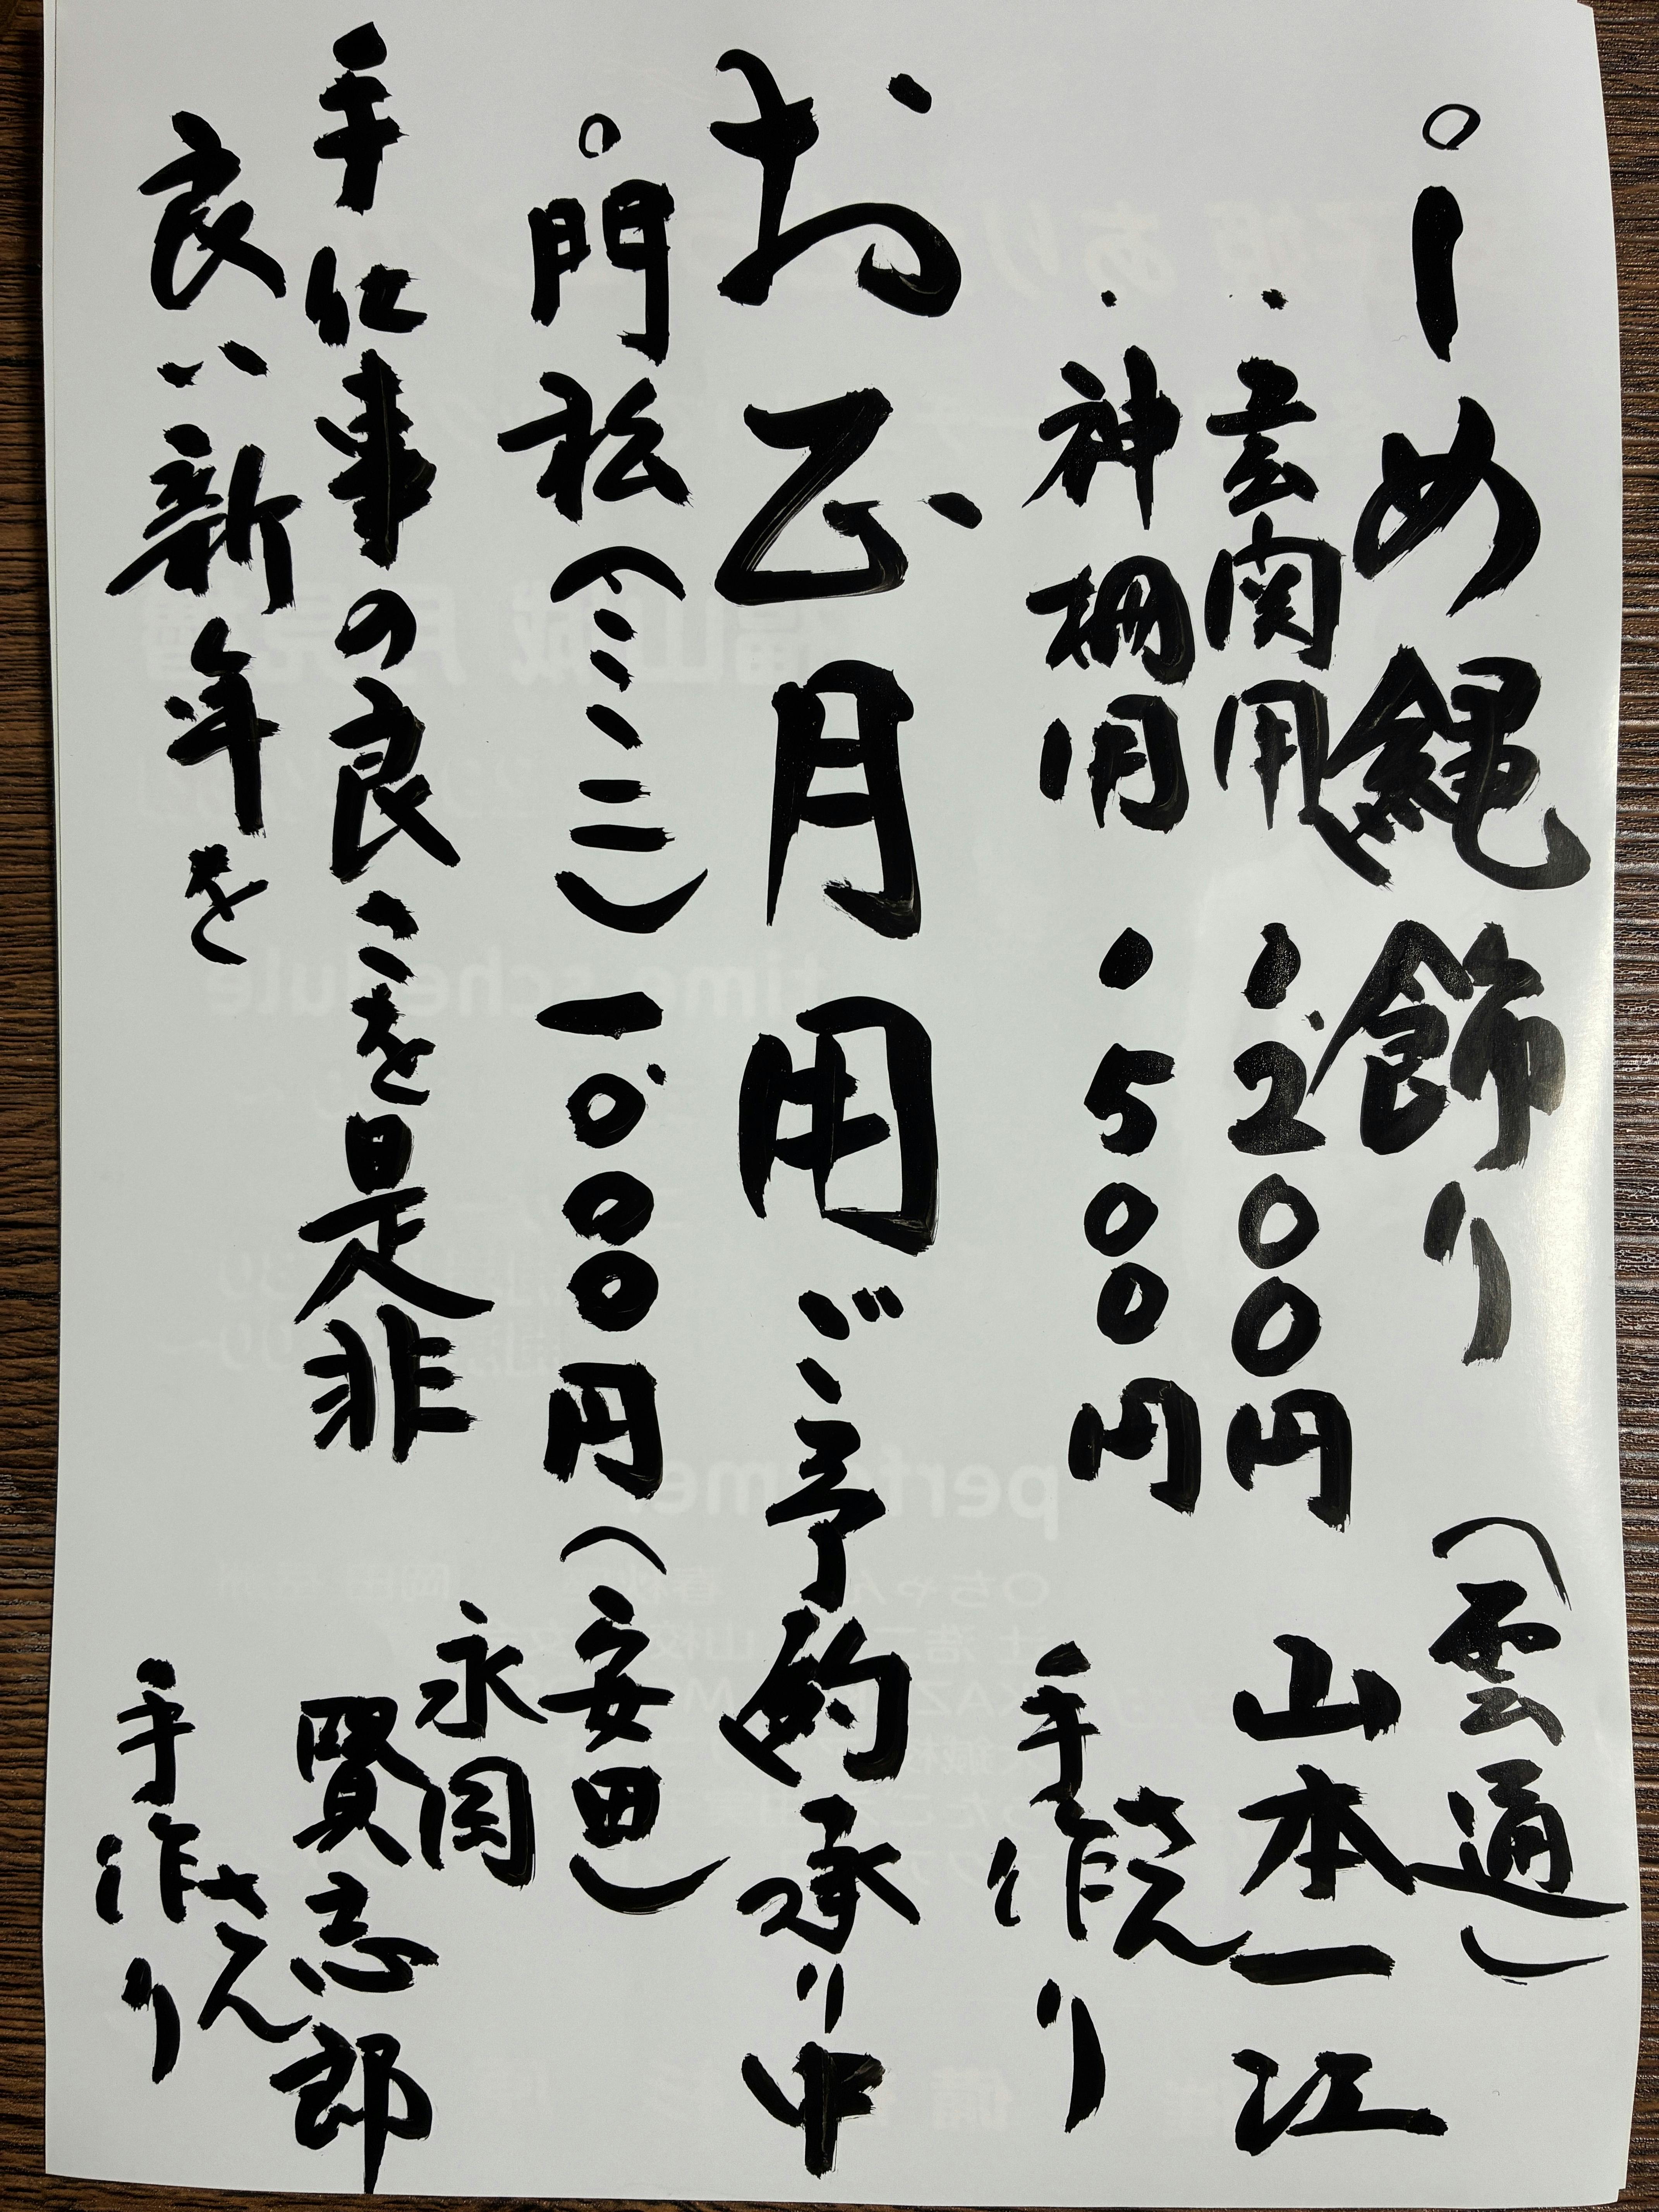 ○しめ縄飾り（雲通）
・玄関用 1,200円 山本一江さん
・神棚用・500円 手作り
お正月用ご予約承り中
○門松（ミニ）一,000円（安田）
永岡
手仕事の良さを是非 賢志郎さん
良い新年を 手作り